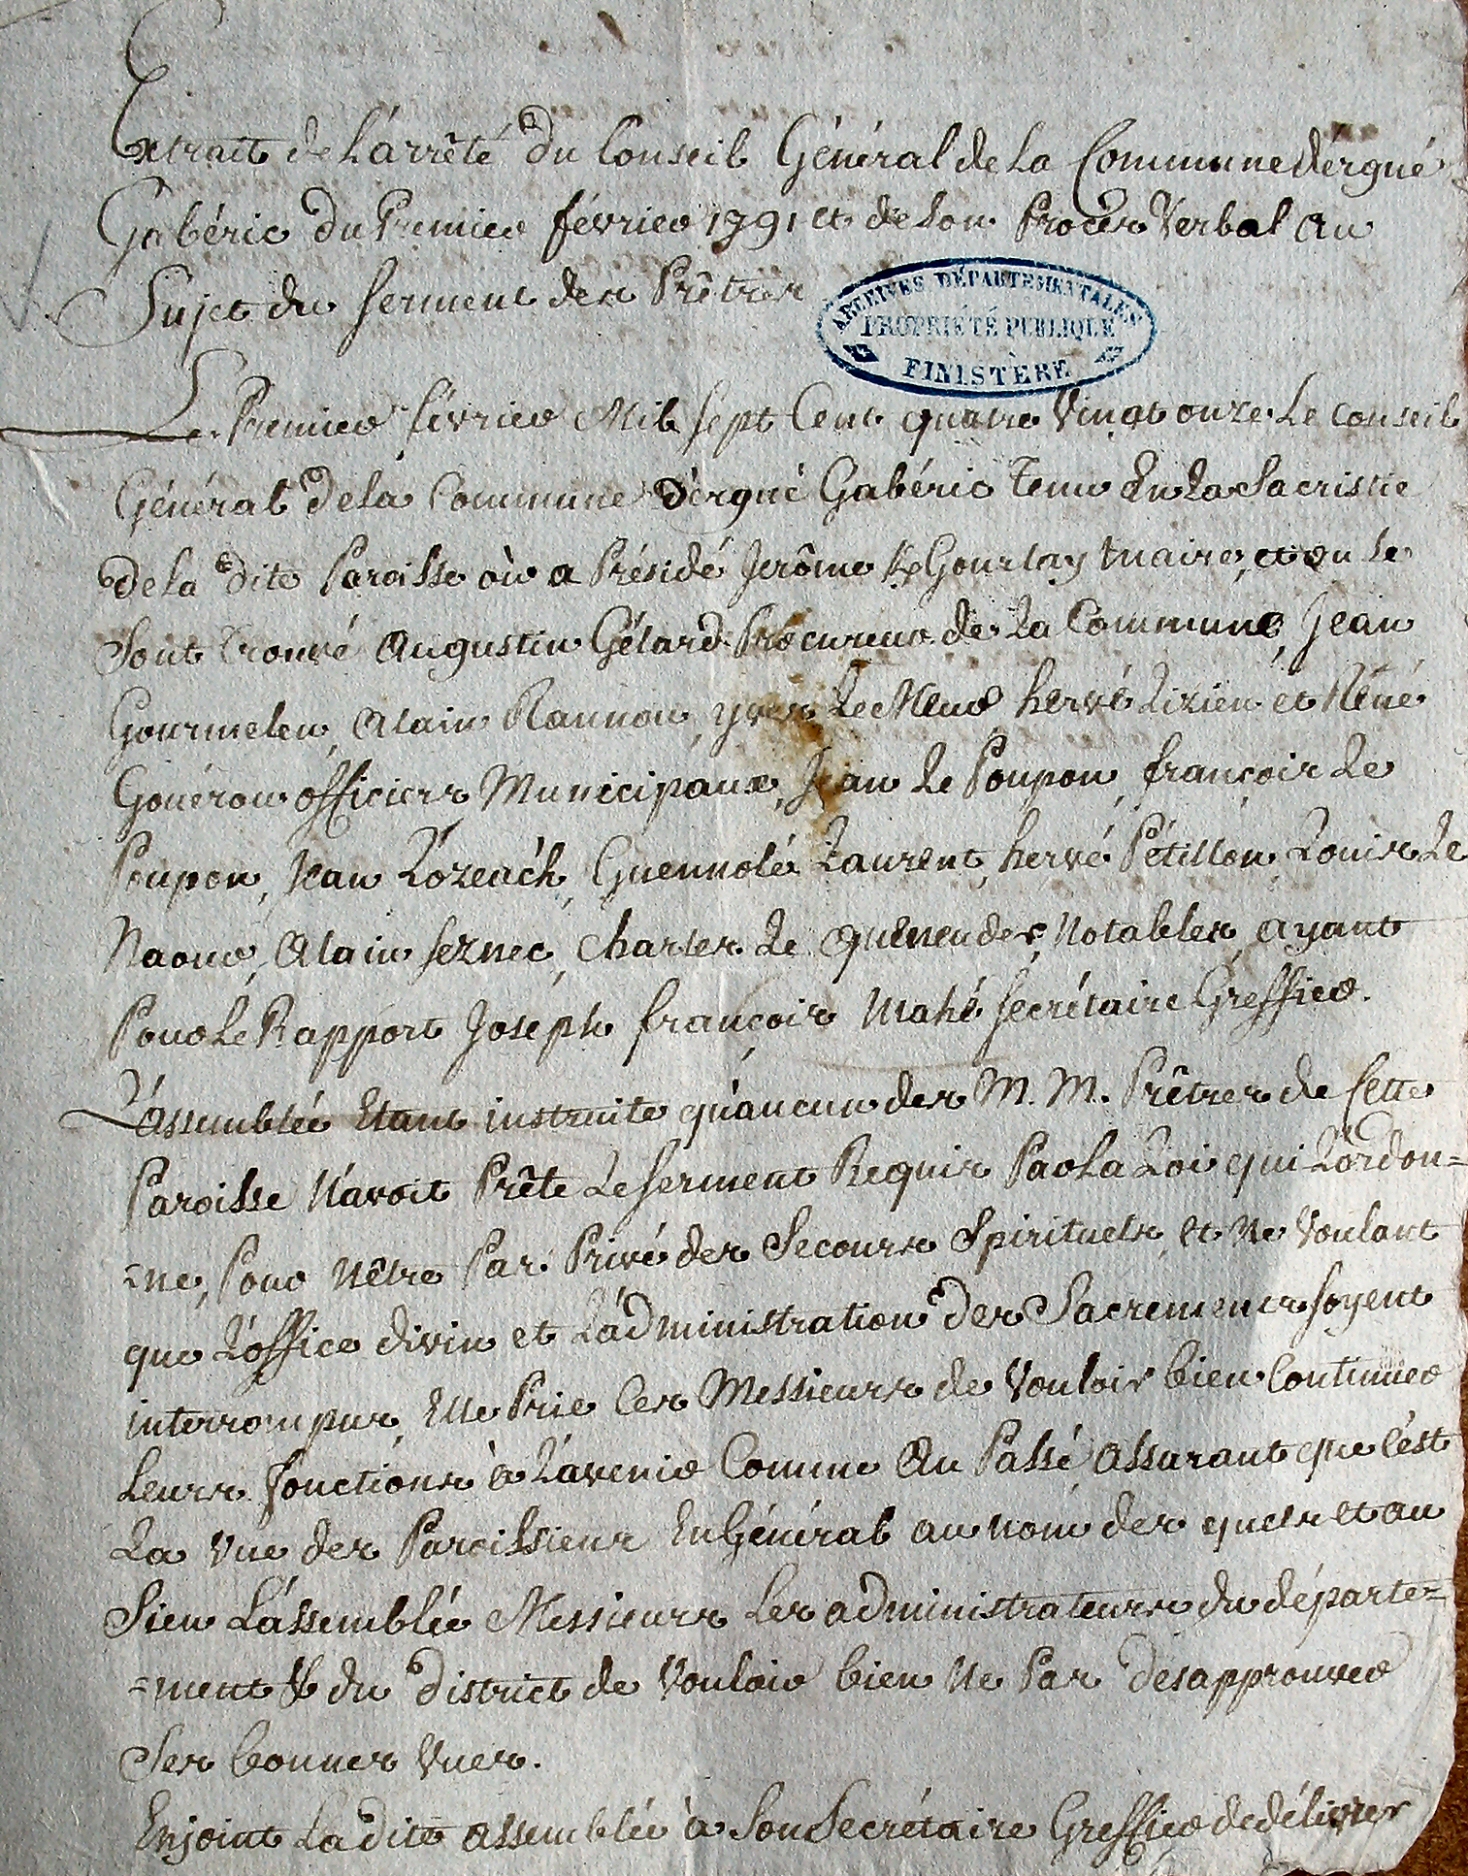 Extrait de L'arrêté du Conseil Général de La Commune d'ergué
Gabéric du Premier février 1791 et de Son Procès Verbal au
Sujet du Serment des Prêtres
ARCHIVES DÉPARTEMENTALES
PROPRIÉTÉ PUBLIQUE
FINISTÈRE
Le Premier février Mil sept Cent quatre Vingt onze Le Conseil
Général de la Commune d'ergué Gabéric tenu En La Sacristie
de la dite Paroisse où a Présidé Jérôme K Gourlay Maire, et ou se
Sont trouvé Augustin Gélard Procureur de La Commune, Jean
Gourmelen, Alain Rannou, yves Le Meur hervé Lizien et Réné
Gouérou officiers Municipaux, Jean Le Poupon, françois Le
Poupon, Jean Lozéac'h, Guennolé Laurent, hervé Pétillon, Louis Le
Naour, Alain seznec, Charles Le quénender, Notables, ayant
Pour Le Rapport Joseph françois Mahé secrétaire Greffier.
L'assemblée Etant instruite qu'aucun des M. M. Prêtres de Cette
Paroisse N'avoit Prêté Le serment Requis Par La Loi qui L'ordon=
=ne, Pour N'être Pas Privé des Secours Spirituels, et Ne Voulant
que L'office divin et L'administration des Sacrements soyent
interrompus, Elle Prie Ces Messieurs de Vouloir bien Continuer
Leurs fonctions à L'avenir Comme Au Passé assurant que C'est
La Vue des Paroissiens En Général au nom des quels et au
Sien L'assemblée Messieurs Les administrateurs du départe=
=ment & du district de Vouloir bien Ne Pas désapprouver
Ses bonnes Vues.
Enjoint La dite assemblée à Son Secrétaire Greffier de délivrer